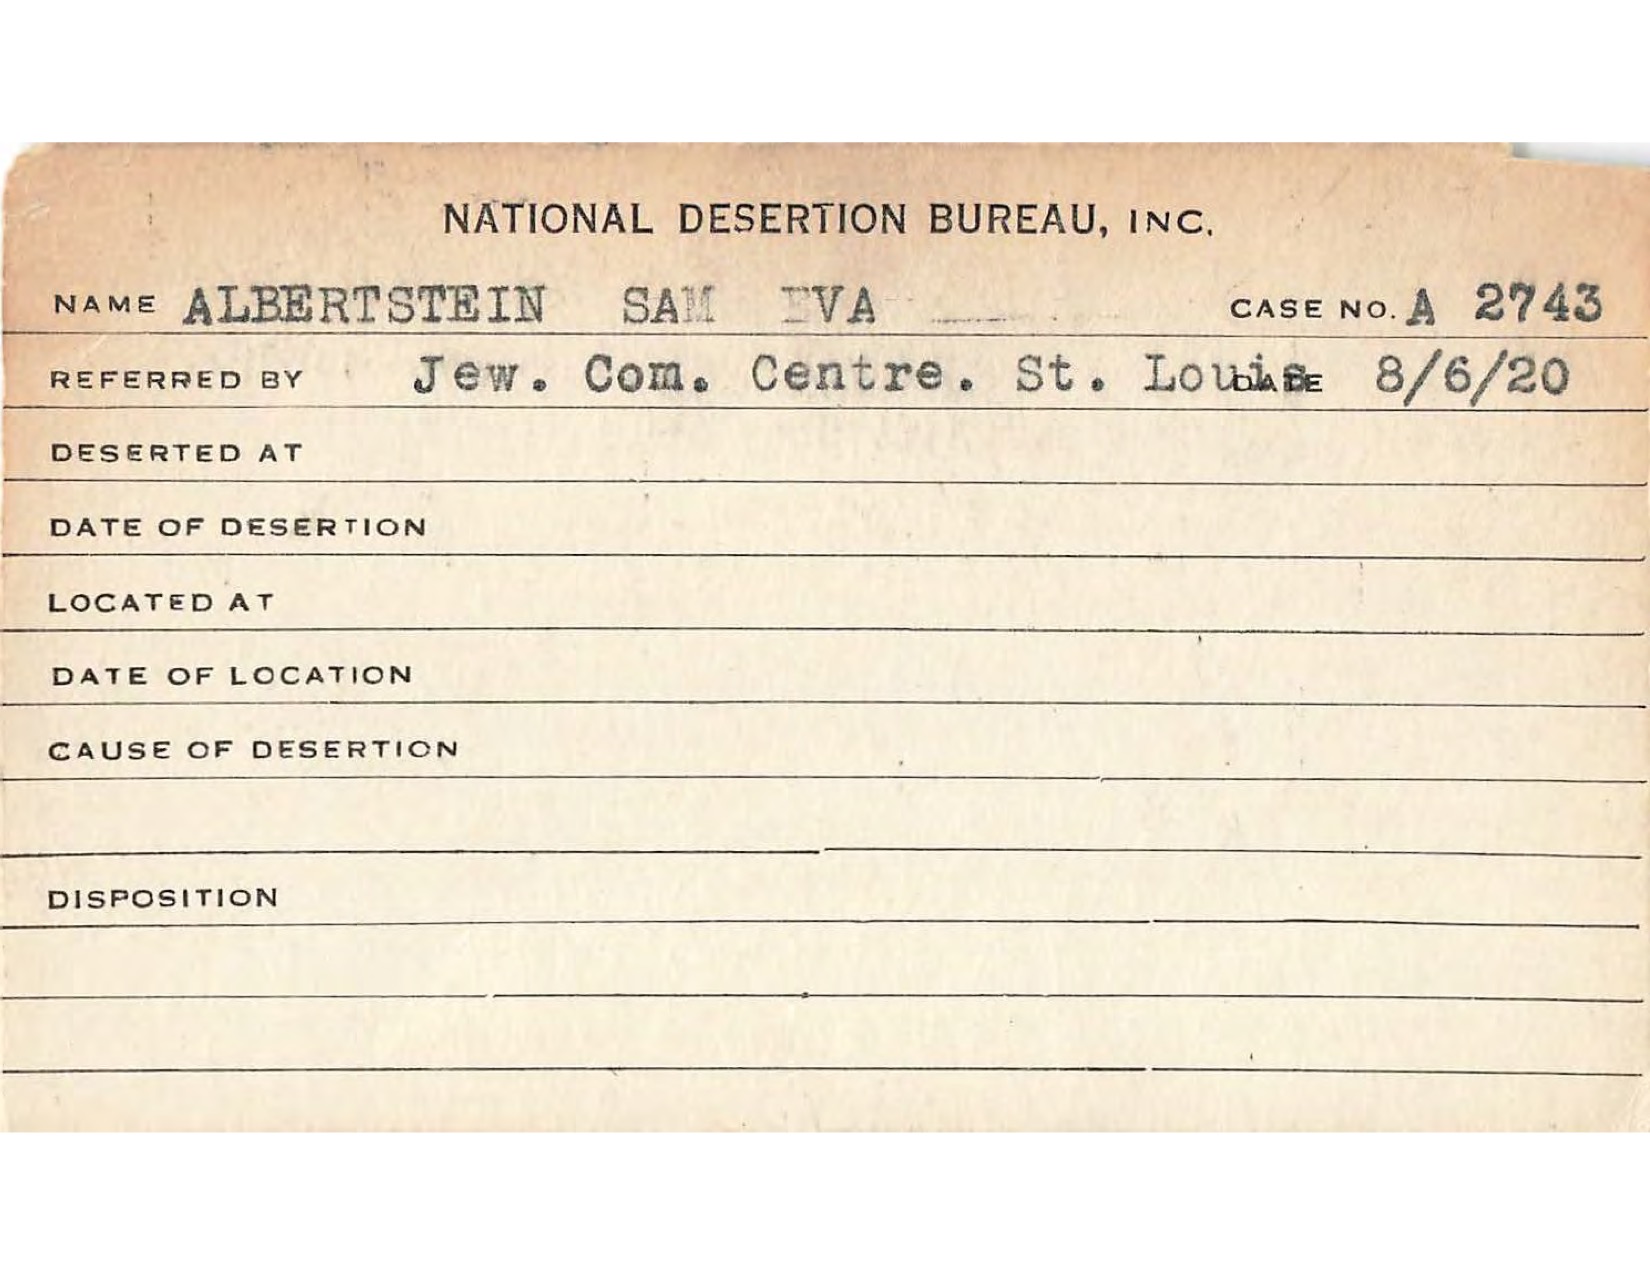 NATIONAL DESERTION BUREAU, INC.
NAME ALBERTSTEIN SAM EVA CASE NO. A 2743
REFERRED BY Jew. Com. Centre. St. Louis DATE 8/6/20
DESERTED AT
DATE OF DESERTION
LOCATED AT
DATE OF LOCATION
CAUSE OF DESERTION
DISPOSITION